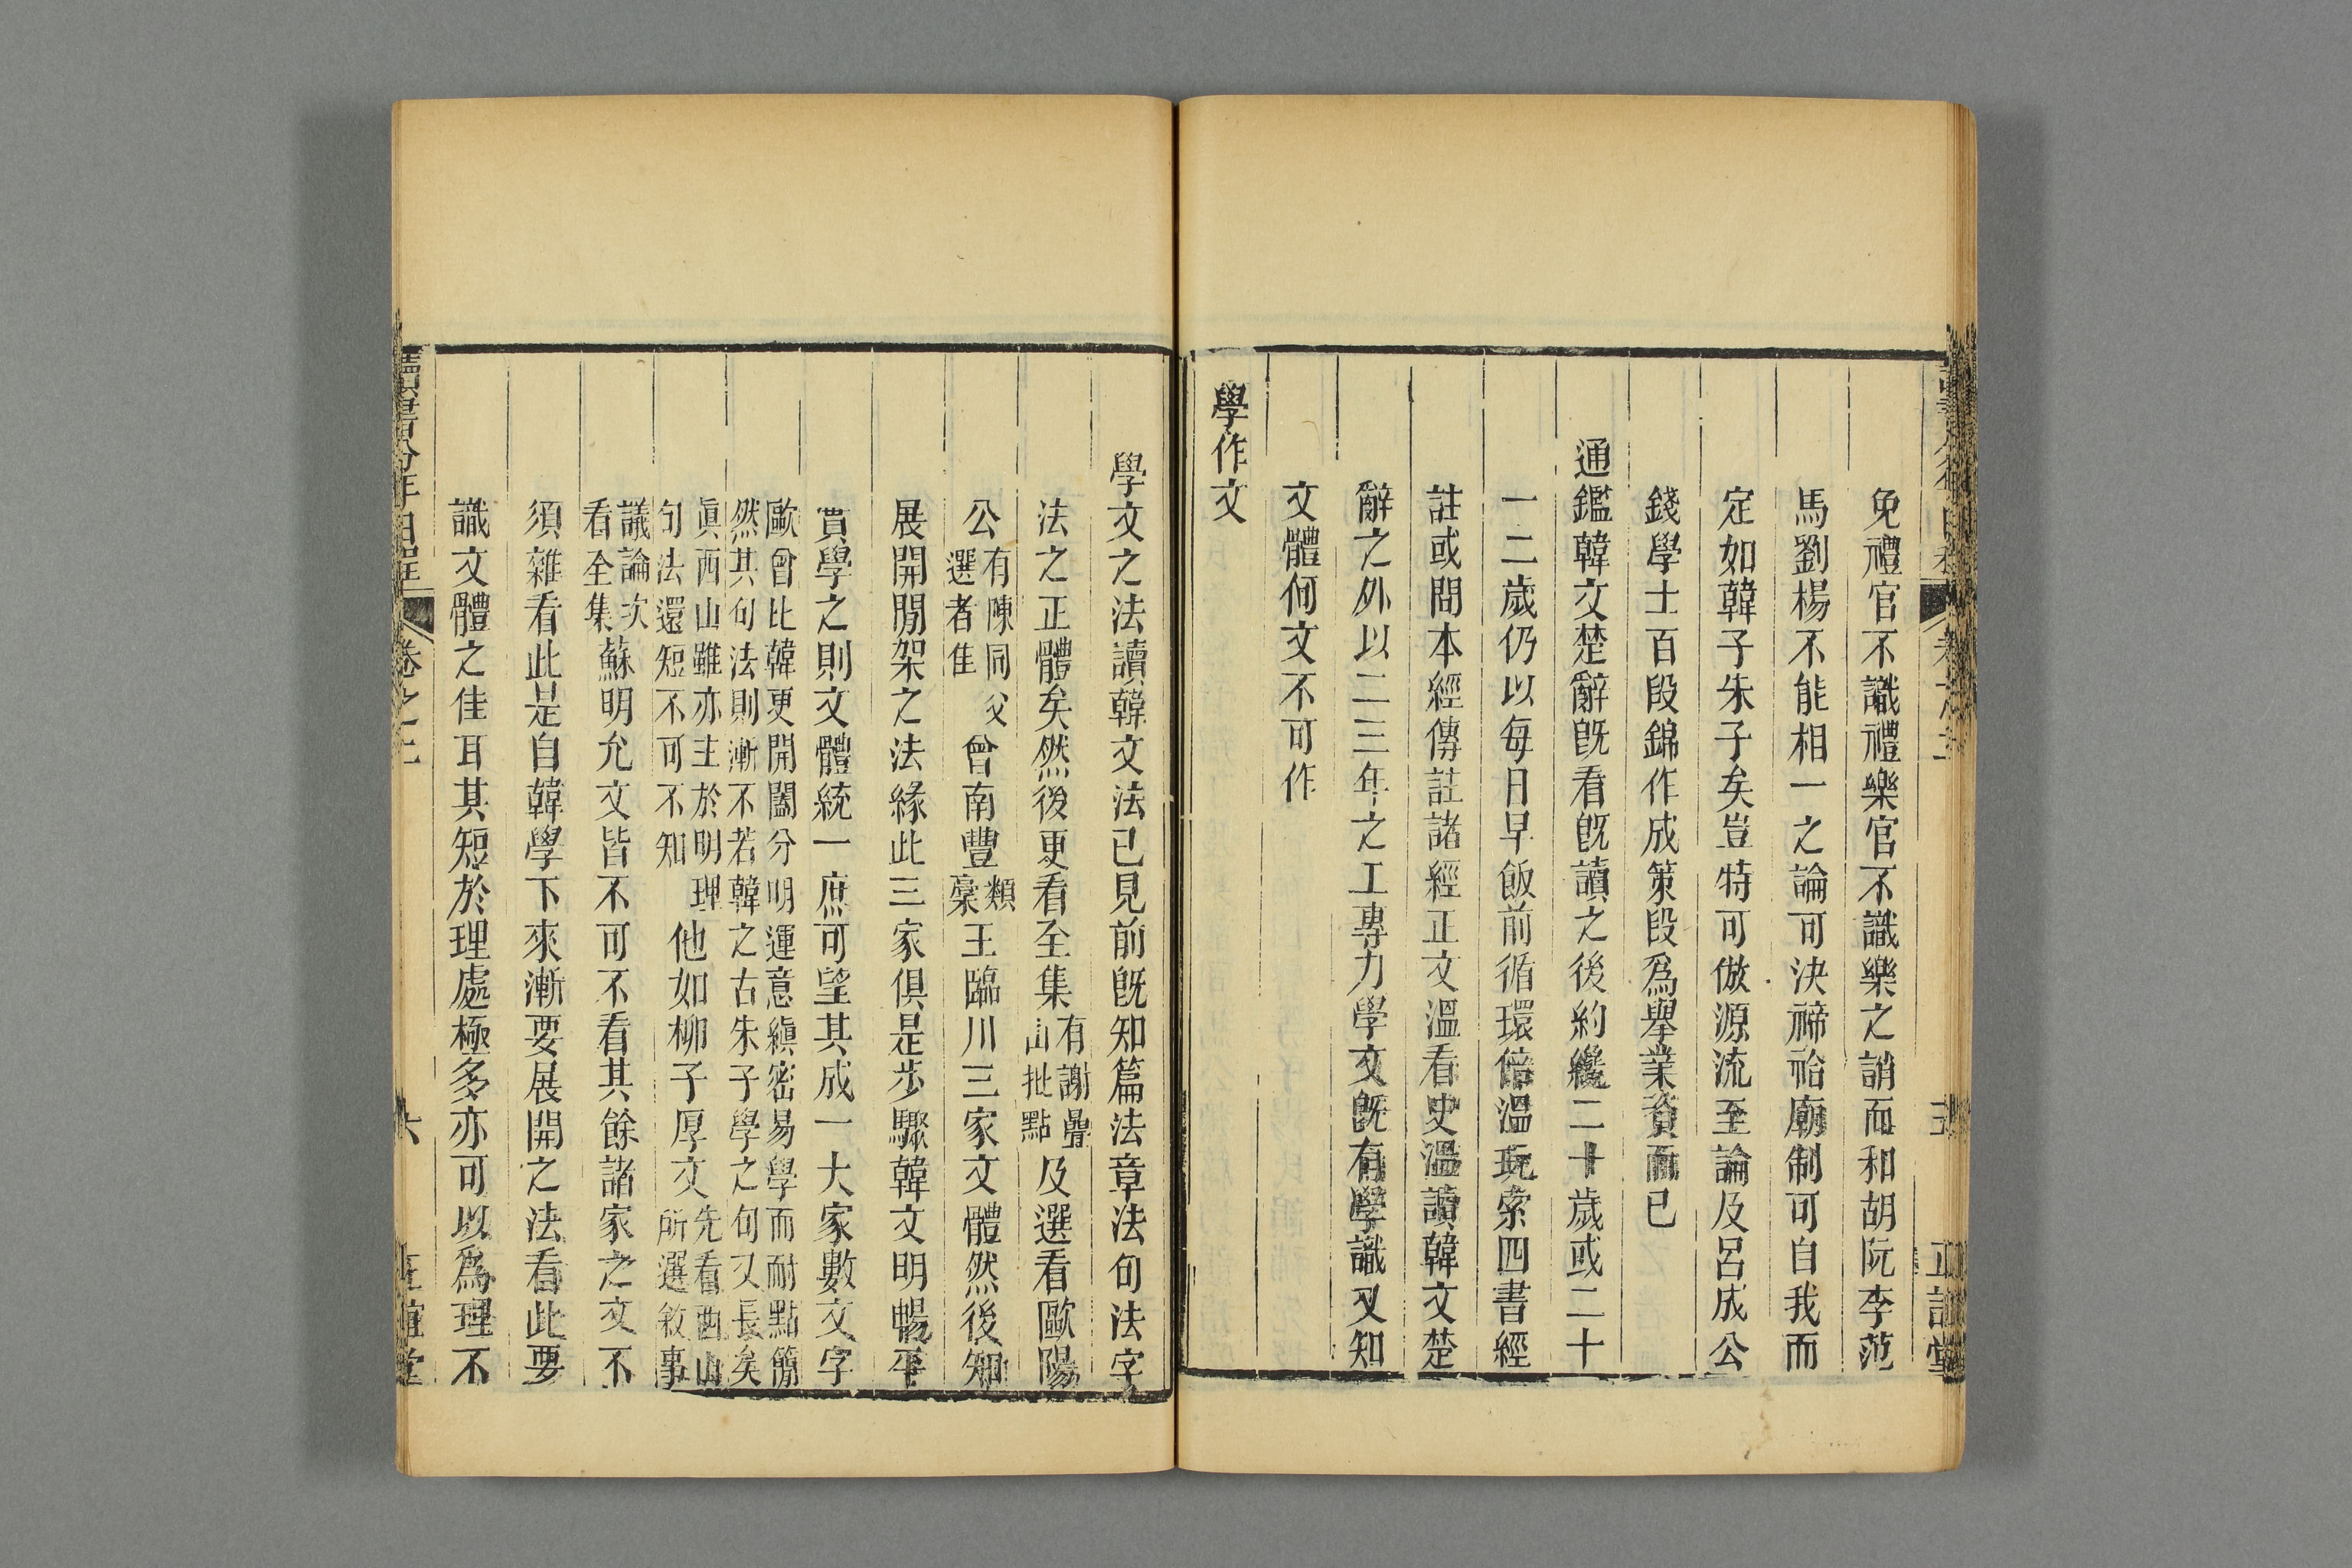 免禮官不識禮樂官不識樂之誚而和胡阮李范
馬劉楊不能相一之論可決禘祫廟制可自我而
定如韓子朱子矣豈特可倣源流至論及呂成公
錢學士百段錦作成策段爲舉業資而已
通鑑韓文楚辭旣看旣讀之後約纔二十歲或二十
一二歲仍以每日早飯前循環倍溫玩索四書經
註或問本經傳註諸經正文溫看史溫讀韓文楚
辭之外以二三年之工專力學文旣有學識又知
文體何文不可作
學作文
學文之法讀韓文法已見前旣知篇法章法句法字
法之正體矣然後更看全集有謝疊山批點及選看歐陽
公有陳同父選者佳曾南豐類稾王臨川三家文體然後知
展開間架之法緣此三家俱是步驟韓文明暢平
實學之則文體統一庶可望其成一大家數文字
歐曾比韓更開闔分明運意縝密易學而耐點簡
然其句法則漸不若韓之古朱子學之句又長矣
眞西山雖亦主於明理
句法還短不可不知他如柳子厚文先看西山所選敘事
議論次看全集蘇明允文皆不可不看其餘諸家之文不
須雜看此是自韓學下來漸要展開之法看此要
識文體之佳耳其短於理處極多亦可以爲理不
讀書分年日程
卷之二
六
正誼堂